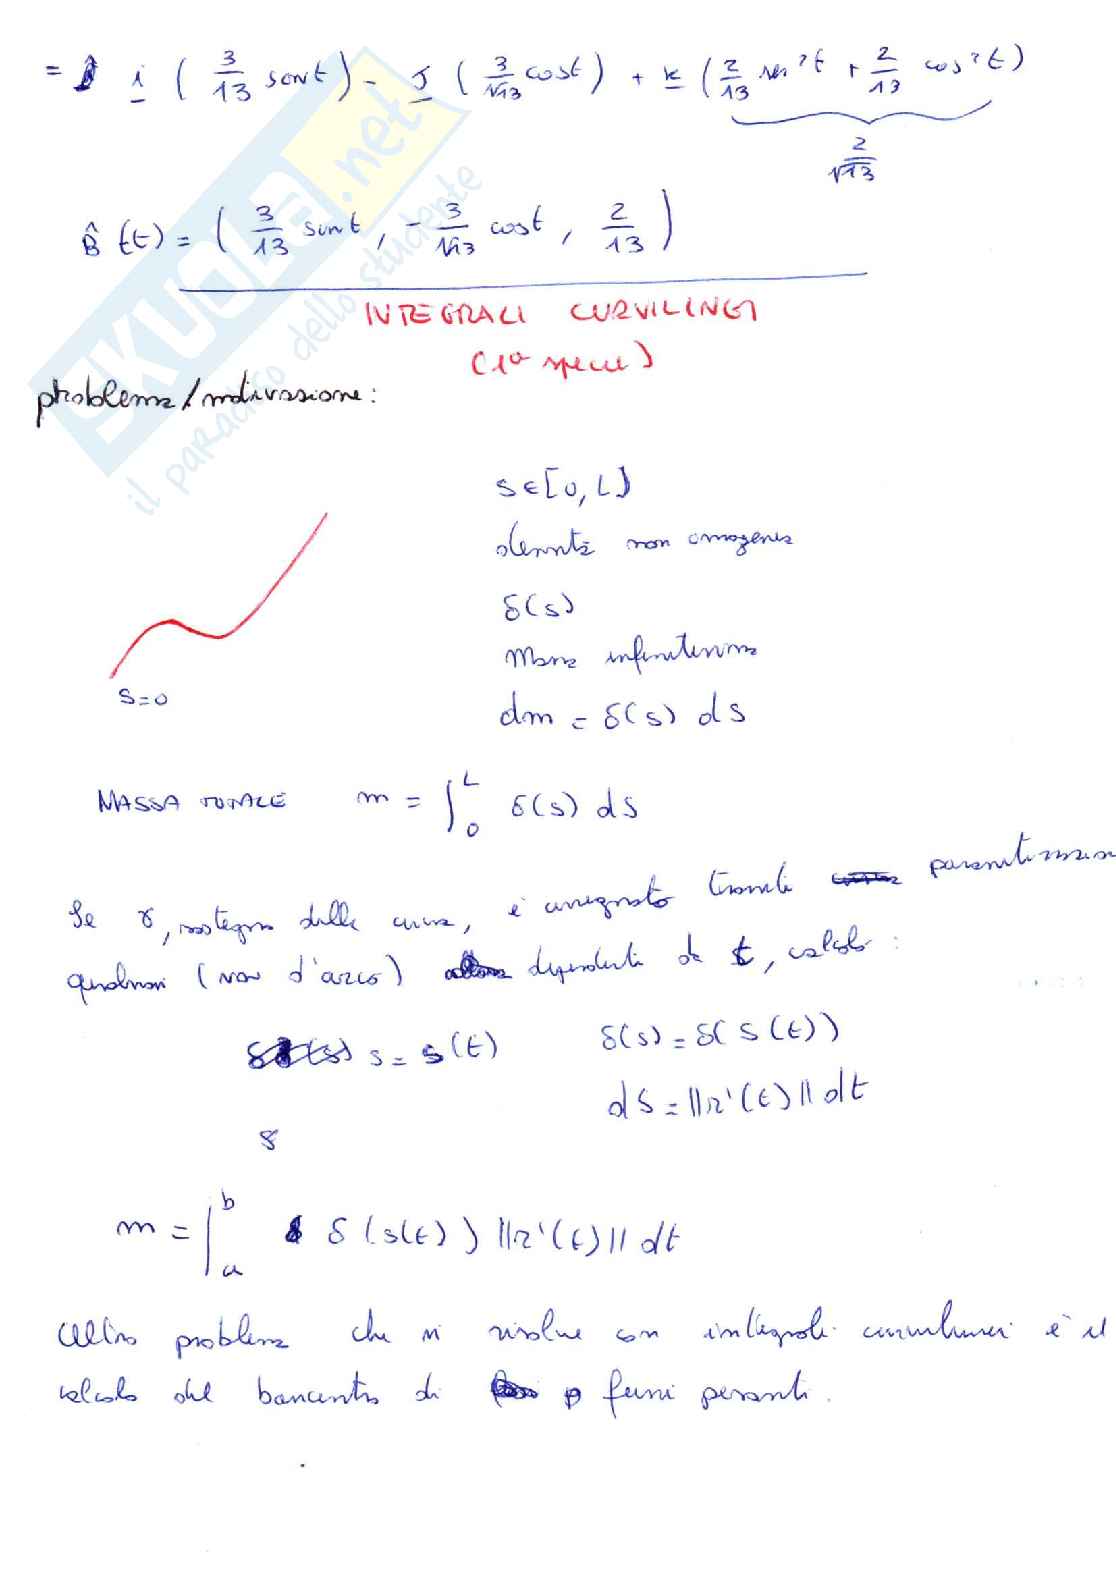 = i ( 3/13 sent ) - J ( 3/√13 cost ) + k ( 2/13 sen²t + 2/13 cos²t )
2/√13
B̂(t) = ( 3/13 sint, - 3/√13 cost, 2/13 )
INTEGRALI CURVILINEI
(1ª specie)
problema/motivazione:
s∈[0,L]
densità non omogenea
δ(s)
Massa infinitesima
s=0
dm = δ(s) ds
MASSA TOTALE m = ∫₀ᴸ δ(s) ds
Se γ, sostegno della curva, è assegnato tramite parametrizzazioni
qualsiasi (non d'arco) dipendenti da t, calcolo:
s = s(t) δ(s) = δ(s(t))
ds = ||r'(t)|| dt
8
m = ∫ₐᵇ δ(s(t)) ||r'(t)|| dt
Altro problema che si risolve con integrali curvilinei è il
calcolo del baricentro di fermi pesanti.
SKUOLA.net
il paradiso dello studente